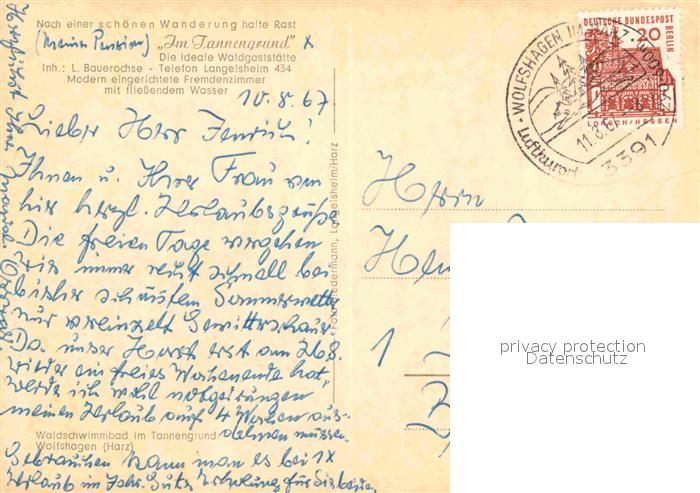 Nach einer schönen Wanderung halte Rast
(meine Pension) „Im Tannengrund" x
Die ideale Waldgaststätte
Inh.: L. Bauerochse - Telefon Langelsheim 434
Modern eingerichtete Fremdenzimmer
mit fließendem Wasser
10.8.67.
Lieber Herr
Ihnen u. Ihrer Frau von
hier herzl. Urlaubsgrüße
Die freien Tage vergehen
immer recht schnell bei
bisher schönstem Sommerwetter
nur vereinzelt Gewitterschauer.
Da unser Horst erst am 26.8.
wieder ein freies Wochenende hat,
werde ich wohl notgedrungen
meinen Urlaub auf 4 Wochen aus-
dehnen müssen
Gebrauchen kann man es bei 1x
Urlaub im Jahr. Gute Erholung für Sie beide
Herzlichst Ihre
Waldschwimmbad im Tannengrund
Wolfshagen (Harz)
Foto-Riedermann, Langelsheim/Harz
DEUTSCHE BUNDESPOST BERLIN
20
LORSCH/HESSEN
WOLFSHAGEN IM HARZ
11.8.67
Luftkurort
3391
Herrn
1
privacy protection
Datenschutz